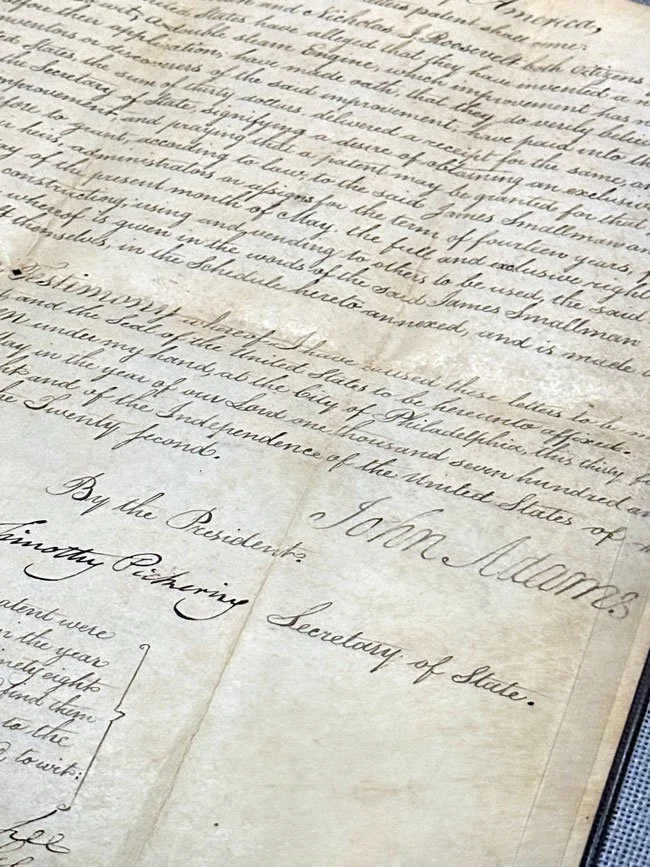 America,
patent shall come:
and Nicholas J Roosevelt, both Citizens
States, have alleged that they have invented a
double Steam Engine, which improvement has
their application, have made oath that they do verily believe
inventors or discoverers of the said improvement, have paid into the
States the sum of thirty dollars delivered a receipt for the same
the Secretary of State, signifying a desire of obtaining an exclusive
improvement and praying that a patent may be granted for that
to grant, according to law, to the said James Smallman
heirs, administrators or assigns for the term of fourteen years,
of the present month of May, the full and exclusive right
constructing, using and vending to others to be used, the said
is given in the words of the said James Smallman
themselves, in the Schedule hereto annexed, and is made
Testimony whereof I have caused these letters to
and the Seal of the United States to be hereunto affixed.
under my hand, at the City of Philadelphia, this thirty
day in the year of our Lord one thousand seven hundred
and of the Independence of the United States of
the Twenty Second.
By the President:
John Adams
Timothy Pickering
Secretary of State.
patent were
in the year
ninety eight
find them
to the
to wit:
Lee